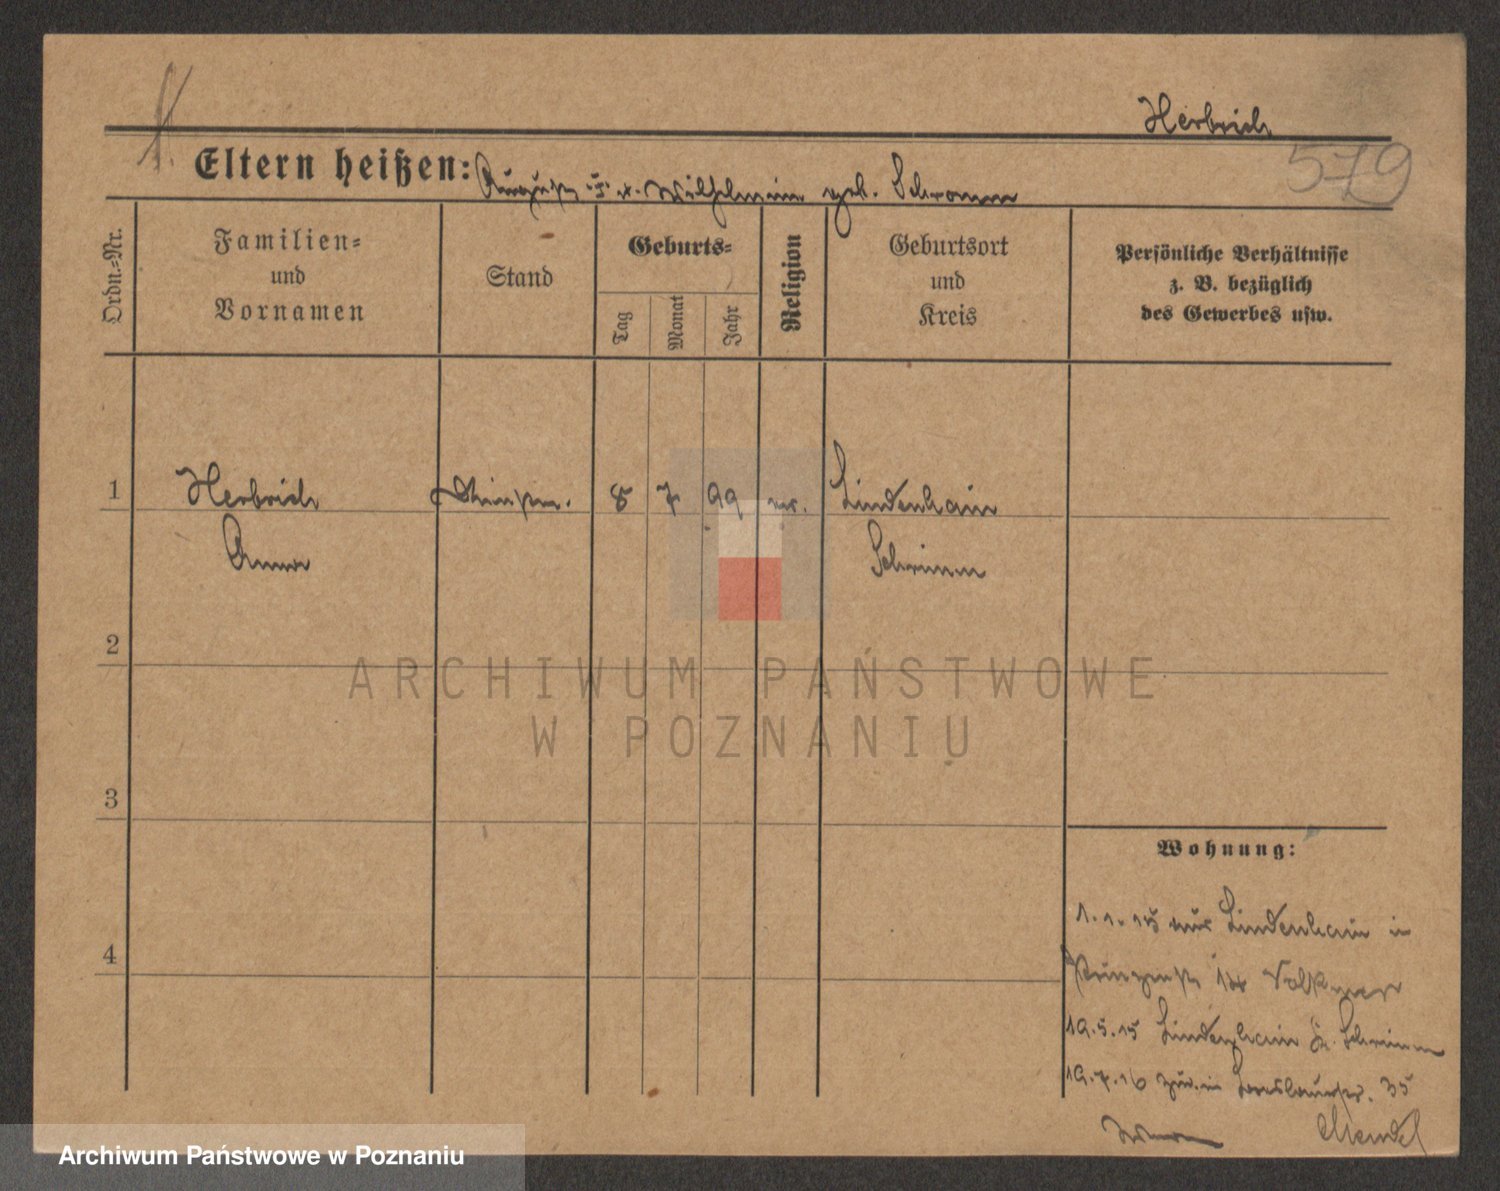 Herbrich
579
Eltern heißen: August u. Wilhelmine geb. Schramm
Ordn.=Nr.
Familien=
und
Vornamen
Stand
Geburts=
Tag
Monat
Jahr
Religion
Geburtsort
und
Kreis
Persönliche Verhältnisse
z. B. bezüglich
des Gewerbes usw.
1 Herbrich 8 7 99 Lindenhain
Anna Schrimm
2
3
4
Wohnung:
1.1.15 aus Lindenhain in
14 Volkmer
19.5.15 Lindenhain Kr. Schrimm
19.7.16 zur. in Breslauerstr. 35
Mendel
ARCHIWUM PAŃSTWOWE
W POZNANIU
Archiwum Państwowe w Poznaniu